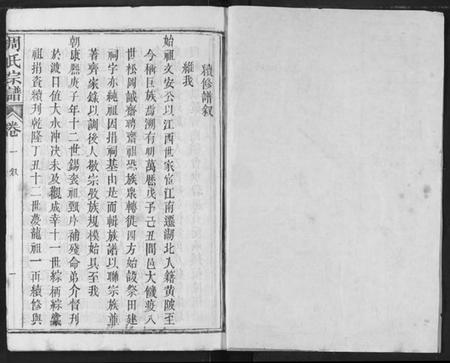 續修譜叙
維我
始祖文安公以江西世家宦江南遷湖北入籍黃陂至
今栖巨族焉溯有明萬懸戊子己丑間邑大饑疫八
世松岡誠齋騁齋祖恐族衆轉徙四方始設祭田建
祠宇亦純祖因捐祠基由是而輯族譜以聯宗族並
著齊家錄以訓後人敬宗收族規模始具至我
朝康熙庚子年十二世錫袞祖甄序補殘命弟介督刊
於渡口值大水冲决未及觀成幸十一世綜栖綜
祖捐貲續刊乾隆丁丑十二世慶龍祖一再續修與
周氏宗譜
卷一叙
一